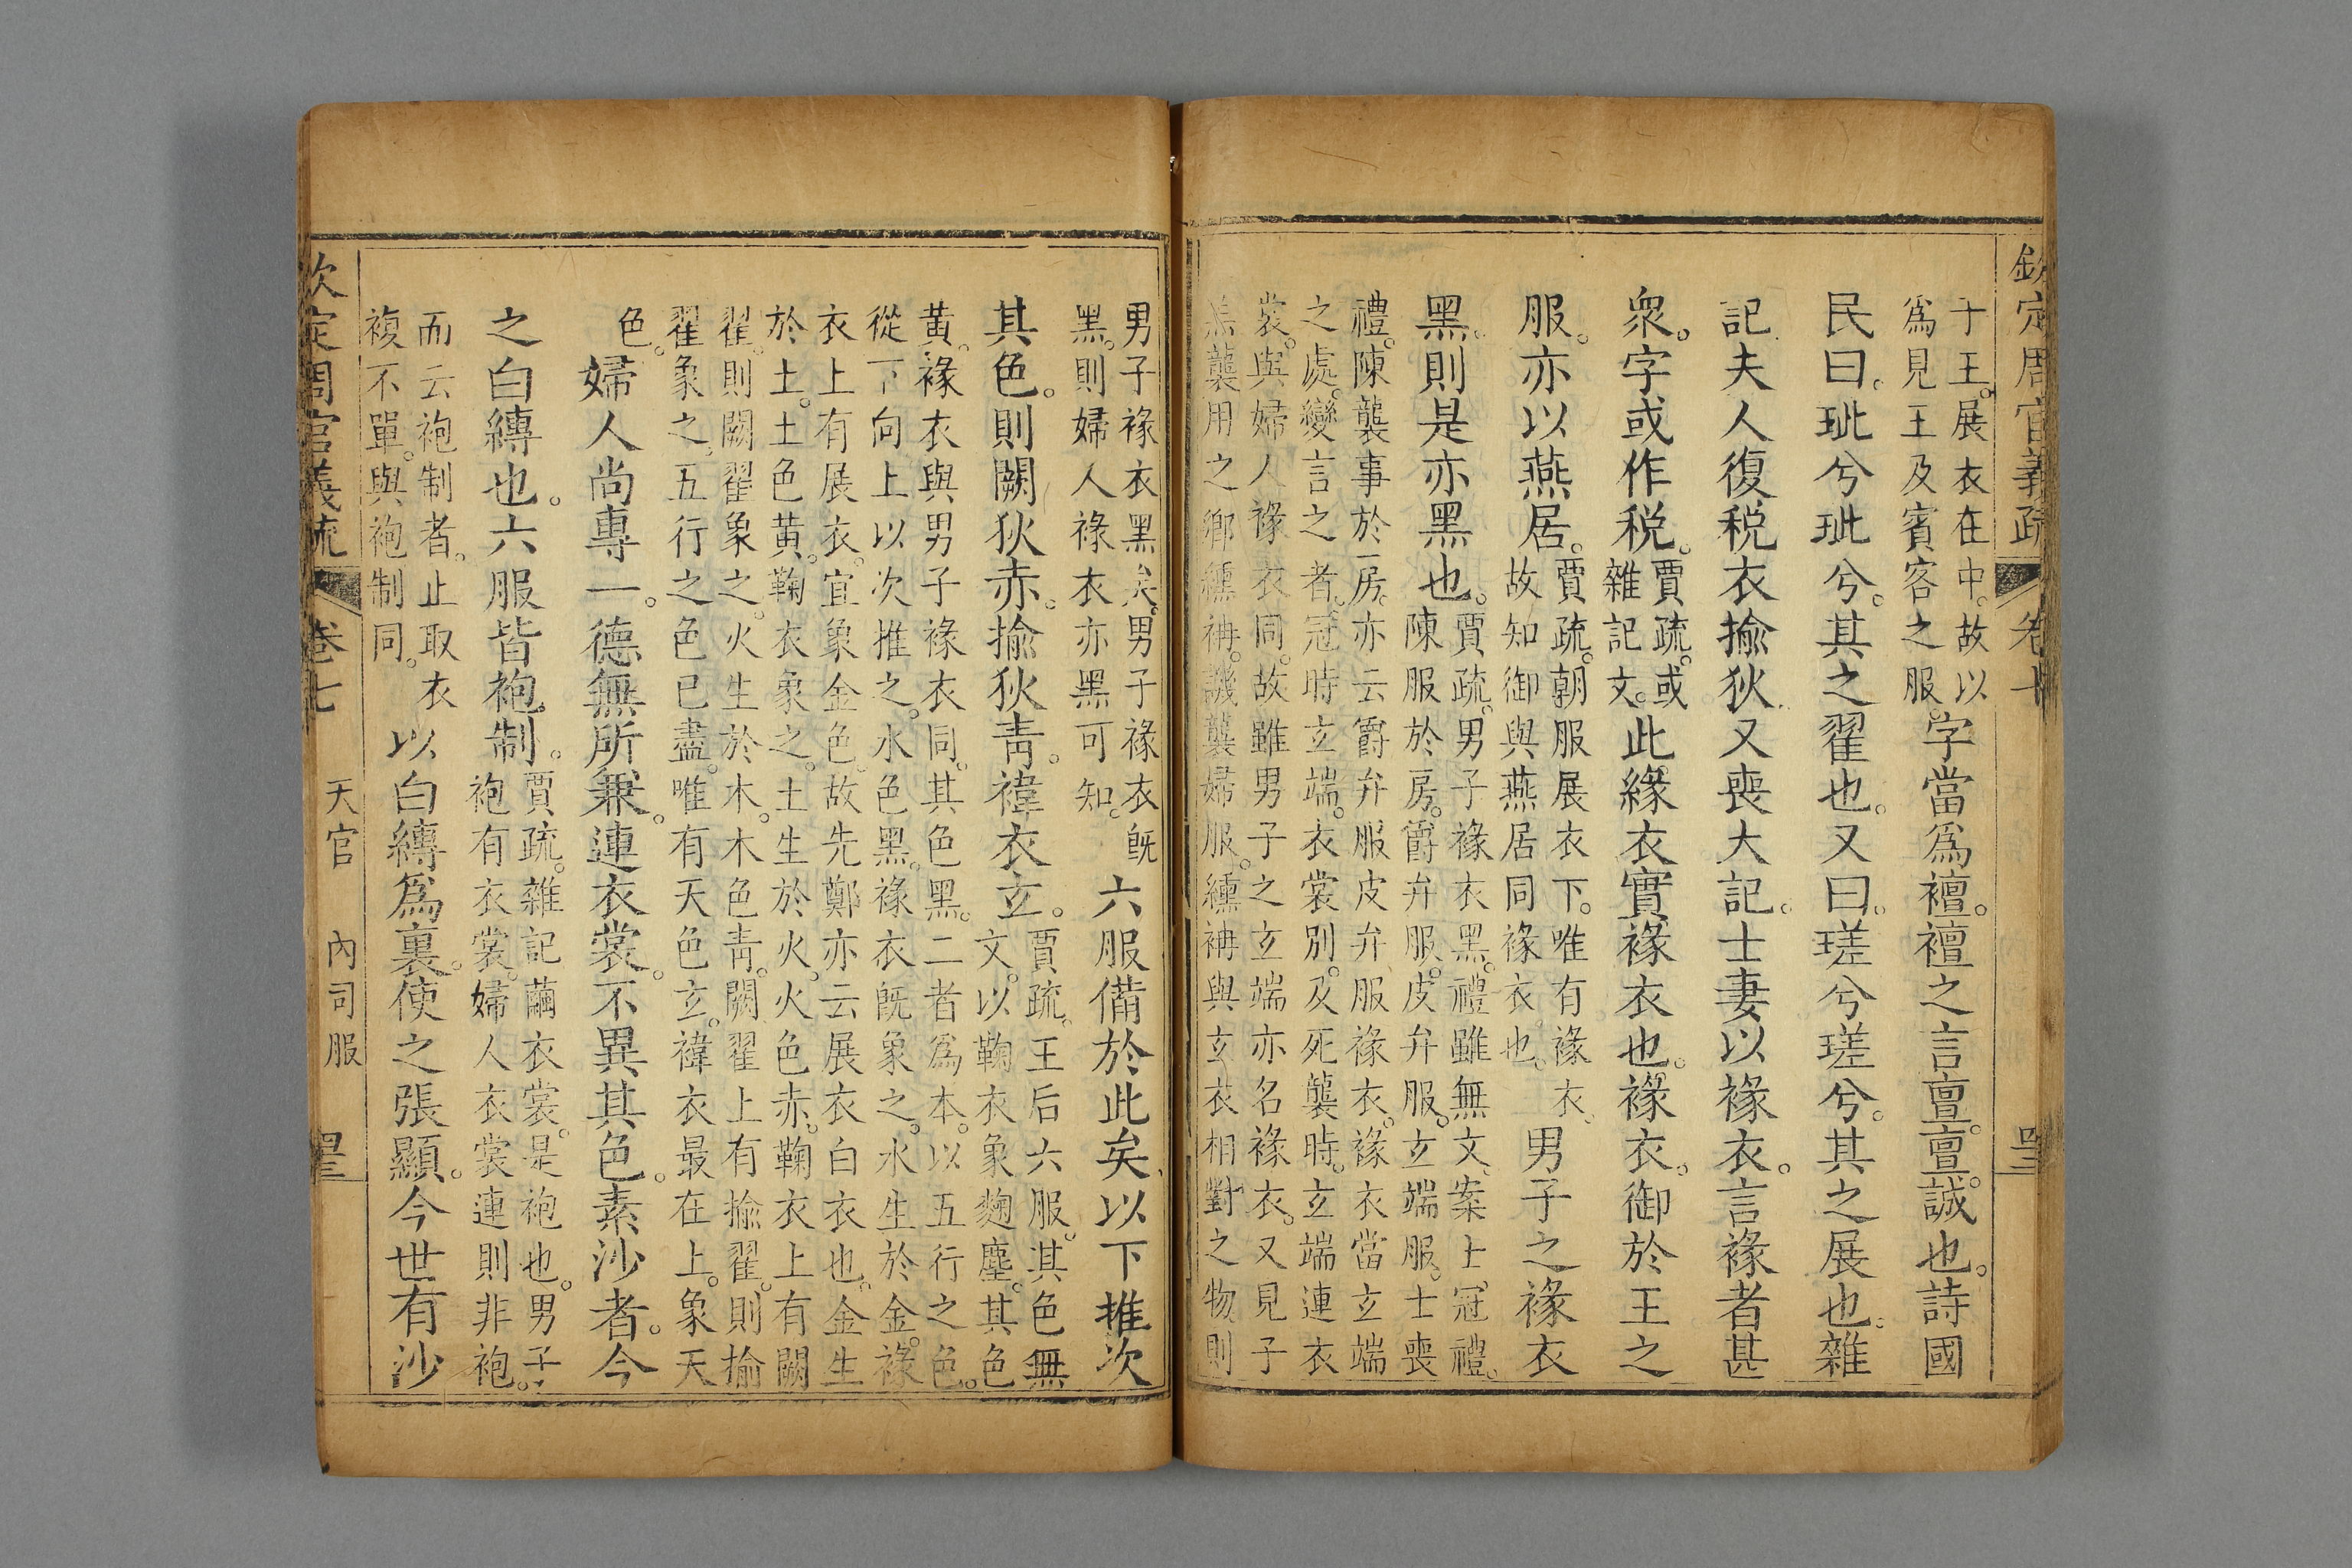 欽定周官義疏 卷七 四三
于王。展衣在中。故以
爲見王及賓客之服。
字當爲襢。襢之言亶。亶。誠也。詩國
民曰。玼兮玼兮。其之翟也。又曰。瑳兮瑳兮。其之展也。雜
記夫人復稅衣揄狄。又喪大記。士妻以褖衣。言褖者甚
衆。字或作稅。
賈疏。或
雜記文。
此緣衣實褖衣也。褖衣。御於王之
服。亦以燕居。
賈疏。朝服展衣下。唯有褖衣、
故知御與燕居同褖衣也。
男子之褖衣
黑。則是亦黑也。
賈疏。男子褖衣黑。禮雖無文、案士冠禮。
陳服於房。爵弁服。皮弁服。玄端服。士喪
禮。陳襲事於房。亦云爵弁服皮弁服褖衣。褖衣當玄端
之處。變言之者。冠時玄端。衣裳別。及死襲時。玄端連衣
裳。與婦人褖衣同。故雖男子之玄端亦名褖衣。又見子
羔襲用之鄉纁袡。譏襲婦服。纁袡與玄衣相對之物則
男子褖衣黑矣。男子褖衣既
黑。則婦人褖衣亦黑可知。
六服備於此矣、以下推次
其色。則闕狄赤。揄狄青。褘衣玄。
賈疏。王后六服。其色無
文。以鞠衣象麴塵。其色
黃。褖衣與男子褖衣同。其色黑。二者爲本。以五行之色。
從下向上以次推之。水色黑。褖衣既象之。水生於金。褖
衣上有展衣。宜象金色。故先鄭亦云展衣白衣也。金生
於土。土色黃。鞠衣象之。土生於火。火色赤。鞠衣上有闕
翟。則闕翟象之。火生於木。木色青。闕翟上有揄翟。則揄
翟象之。五行之色已盡。唯有天色玄。褘衣最在上。象天
色。
婦人尚專一。德無所兼。連衣裳。不異其色。素沙者。今
之白縳也。六服皆袍制。
賈疏。雜記繭衣裳。是袍也。男子
袍有衣裳。婦人衣裳連則非袍。
而云袍制者。止取衣
複不單。與袍制同。
以白縳爲裏。使之張顯。今世有沙
欽定周官義疏 卷七 天官 內司服 四三